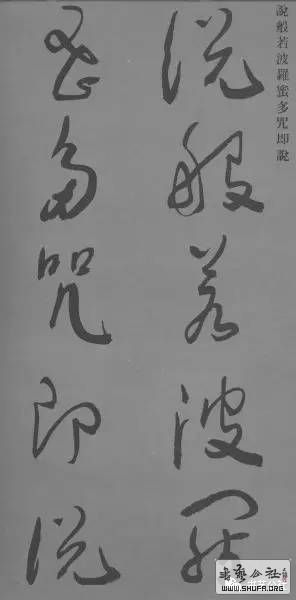 說般若波羅蜜多咒即說
說般若波羅
蜜多咒即說
書藝公社
WWW.SHUFA.ORG